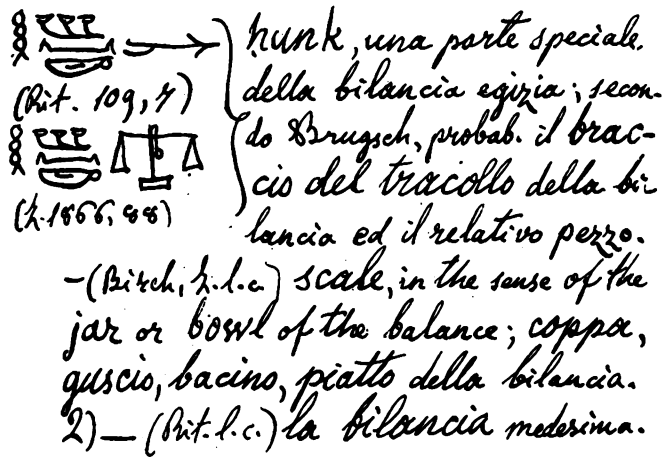 (Rit. 109, 7)
(Z. 1866, 88)
ḥunk, una parte speciale
della bilancia egizia; secon-
do Brugsch, probab. il brac-
cio del tracollo della bi-
lancia ed il relativo pezzo.
–(Birch, Z. l. c.) scale, in the sense of the
jar or bowl of the balance; coppa,
guscio, bacino, piatto della bilancia.
2) — (Rit. l. c.) la bilancia medesima.